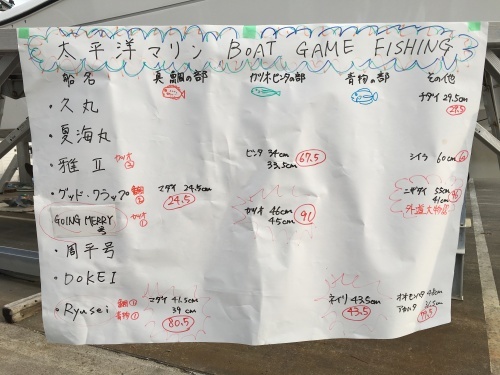 太平洋マリン BOAT GAME FISHING
船名 真鯛の部 カツオ・ビンタの部 青物の部 その他
・久丸 チダイ 29.5cm
29.5
・夏海丸
・雅Ⅱ カツオ② ビンタ 34cm シイラ 60cm
33.5cm 67.5
・グッド・クラップ 真鯛② マダイ 24.5cm 55cm
24.5 41cm
GOING MERRY号 カツオ① カツオ 46cm 外道大物賞
45cm 91
・周平号
・DOKEI
・Ryusei 真鯛① マダイ 41.5cm ネイリ 43.5cm
青物① 39cm 43.5
80.5